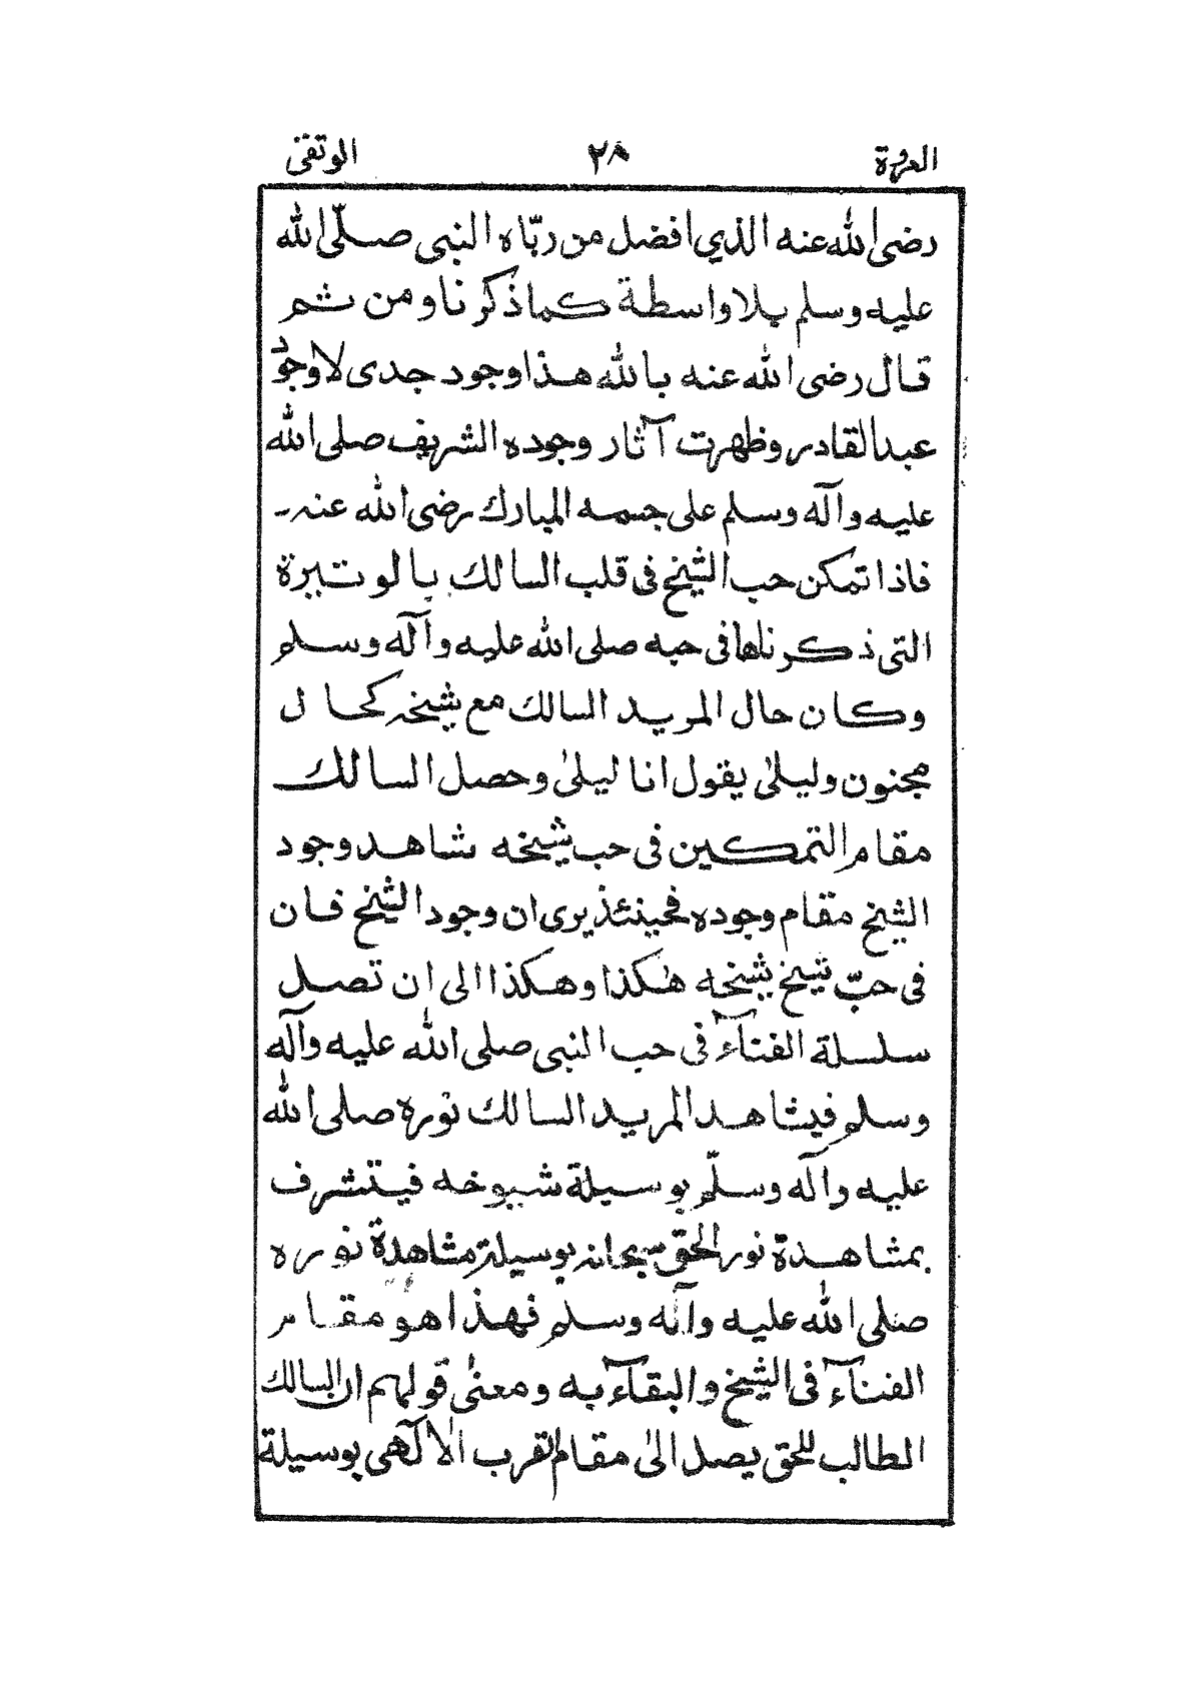 العروة ٢٨ الوثقى
رضى الله عنه الذي افضل من ربّاه النبى صلّى الله
عليه وسلم بلا واسطة كما ذكرنا ومن ثم
قال رضى الله عنه بالله هذا وجود جدى لا وجود
عبد القادر وظهرت آثار وجوده الشريف صلى الله
عليه وآله وسلم على جسمه المبارك رضى الله عنه۔
فاذا تمكن حب الشيخ فى قلب السالك بالوتيرة
التى ذكرناها فى حبه صلى الله عليه وآله وسلم
وكان حال المريد السالك مع شيخه كحال
مجنون وليلىٰ يقول انا ليلىٰ وحصل السالك
مقام التمكين فى حب شيخه شاهد وجود
الشيخ مقام وجوده فحينئذ يرى ان وجود الشيخ فان
فى حبّ شيخ شيخه هٰكذا وهكذا الى ان تصل
سلسلة الفنآء فى حب النبى صلى الله عليه وآله
وسلم فيشاهد المريد السالك نوره صلى الله
عليه وآله وسلّم بوسيلة شيوخه فيتشرف
بمشاهدة نور الحق سبحانه بوسيلة مشاهدة نوره
صلى الله عليه وآله وسلم فهذا هو مقام
الفنآء فى الشيخ والبقآء به ومعنىٰ قولهم ان السالك
الطالب للحق يصل الىٰ مقام القرب الالٰهى بوسيلة